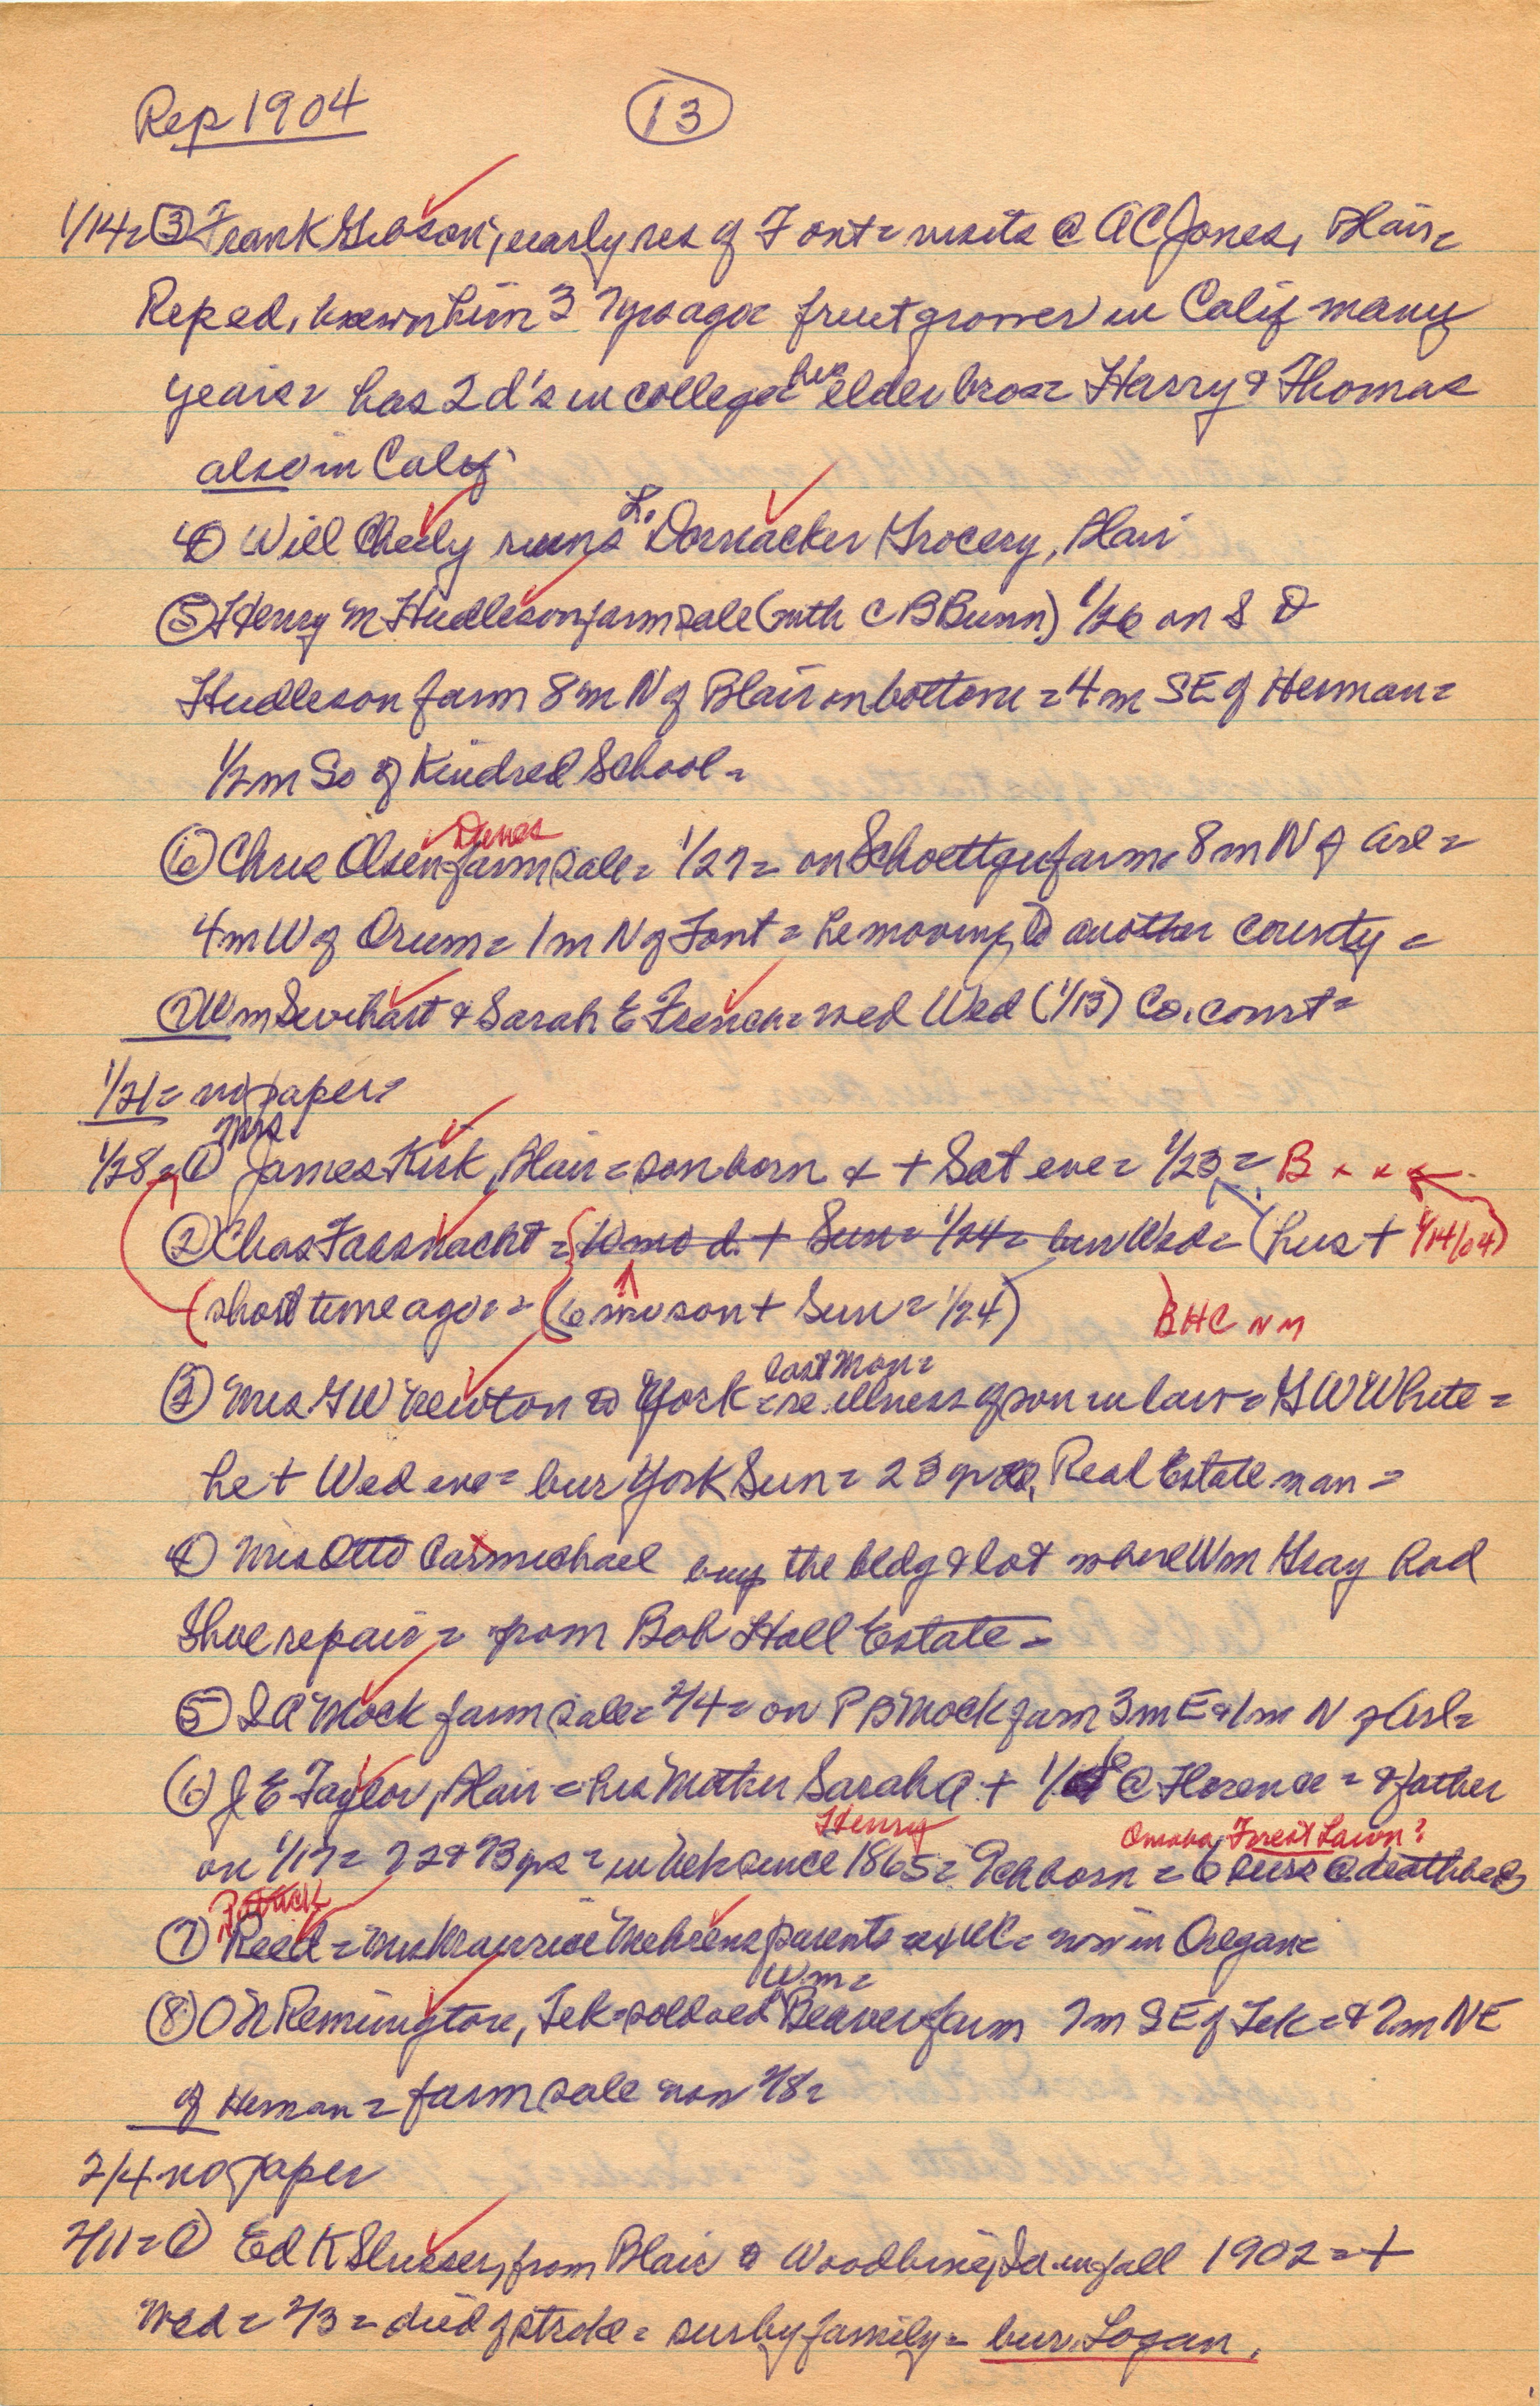 Rep 1904 (13)
1/14 = (3) Frank Gibson, early res of Font = visits @ AC Jones, Blair =
Rep ed, known him 37 yrs ago = fruit grower in Calif many
years = has 2 d's in college = his elder bros = Harry & Thomas
also in Calif
(4) Will Cheely runs L. Dornacker Grocery, Blair
(5) Henry M Hudleson farm sale (with C B Bunn) 1/26 on S D
Hudleson farm 8 m N of Blair on bottom = 4 m SE of Herman =
1/2 m So of Kindred School =
Dienes
(6) Chris Olsen farm sale = 1/27 = on Schoettger farm = 8 m N of Arl =
4 m W of Orum = 1 m N of Font = he moving to another county =
(7) Wm Swihart & Sarah E French = wed Wed (1/13) Co. court =
1/21 = no paper =
1/28 = (1) Mrs James Kirk, Blair = son born & + Sat eve = 1/23 = B x x x
(2) Chas Fassnacht = 10 mo d. + Sun = 1/24 = bur Wed = (hus + 1/14/04)
(short time ago = = (6 mo son + Sun = 1/24) BHC N M
last Mon =
(3) Mrs G W Newton to York = re illness of son in law = G W White =
he + Wed eve = bur York Sun = 23 yr Real Estate man =
(4) Mrs Otto Carmichael buys the bldg & lot where Wm Gray had
Shoe repair = from Bob Hall Estate =
(5) S A Mock farm sale = 2/4 = on P B Mock farm 3 m E & 1 m N of Arl =
(6) J E Taylor, Blair = his Mother Sarah A + @ Florence = & father
Henry Omaha, Forest Lawn?
on 1/17 = 72 & 73 yrs = in Neb since 1865 = 9 ch born = 6 surs @ deathbed
Patrick
(7) Reed = Mrs Maurice Mehrens parents = now in Oregon =
Wm =
(8) O N Remington, Tek = sold Beaver farm 7 m SE of Tek = & 7 m NE
of Herman = farm sale 2/8 =
2/4 no paper
2/11 = (1) Ed K Slusser, from Blair to Woodbine, Ia in fall 1902 = +
Wed = 2/3 = died of stroke = surs by family = bur. Logan.